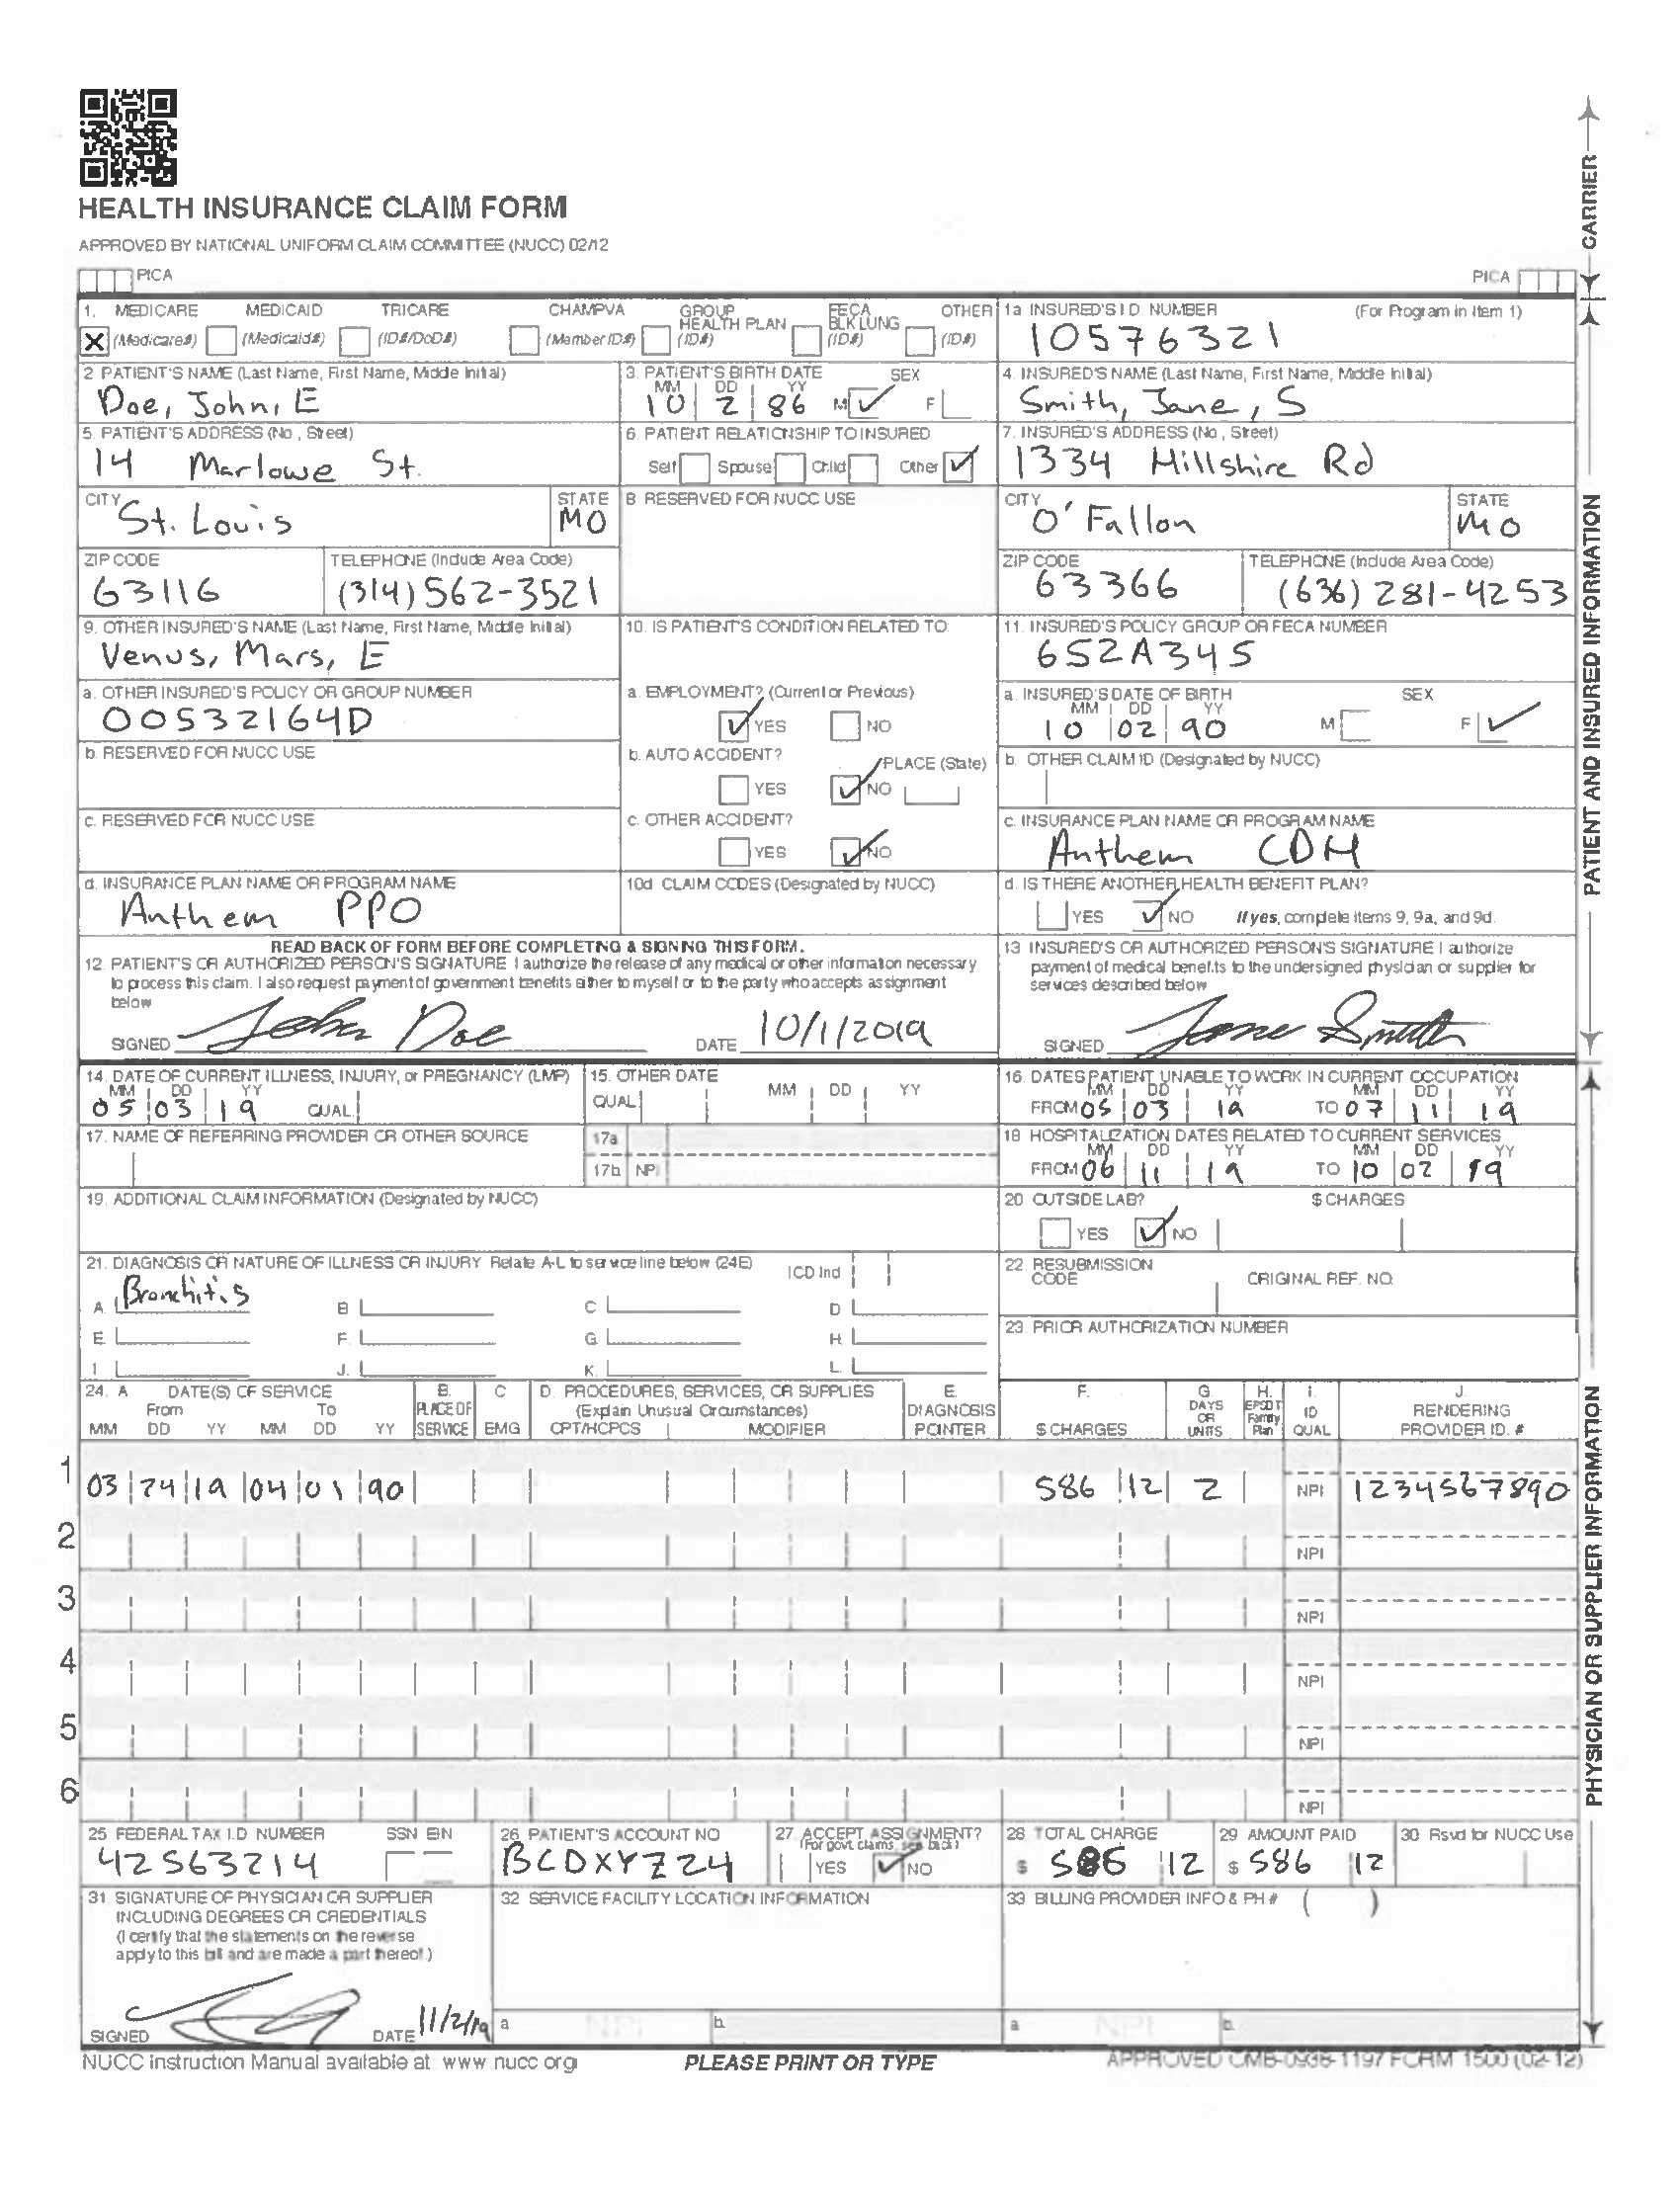 HEALTH INSURANCE CLAIM FORM
APPROVED BY NATIONAL UNIFORM CLAIM COMMITTEE (NUCC) 02/12
PICA PICA
CARRIER
1. MEDICARE MEDICAID TRICARE CHAMPVA GROUP HEALTH PLAN FECA BLK LUNG OTHER
X (Medicare#) (Medicaid#) (ID#/DoD#) (Member ID#) (ID#) (ID#) (ID#)
1a INSURED'S I.D. NUMBER (For Program in Item 1)
10576321
2 PATIENT'S NAME (Last Name, First Name, Middle Initial)
Doe, John, E
3. PATIENT'S BIRTH DATE SEX
MM DD YY
10 2 86 M ✓ F
4. INSURED'S NAME (Last Name, First Name, Middle Initial)
Smith, Jane, S
5. PATIENT'S ADDRESS (No., Street)
14 Marlowe St.
6. PATIENT RELATIONSHIP TO INSURED
Self Spouse Child Other ✓
7. INSURED'S ADDRESS (No., Street)
1334 Millshire Rd
CITY STATE
St. Louis MO
8 RESERVED FOR NUCC USE
CITY STATE
O'Fallon MO
ZIP CODE TELEPHONE (Include Area Code)
63116 (314) 562-3521
ZIP CODE TELEPHONE (Include Area Code)
63366 (636) 281-4253
9. OTHER INSURED'S NAME (Last Name, First Name, Middle Initial)
Venus, Mars, E
10. IS PATIENT'S CONDITION RELATED TO:
11. INSURED'S POLICY GROUP OR FECA NUMBER
652A345
a. OTHER INSURED'S POLICY OR GROUP NUMBER
00532164D
a. EMPLOYMENT? (Current or Previous)
✓ YES NO
a. INSURED'S DATE OF BIRTH SEX
MM DD YY
10 02 90 M F ✓
b. RESERVED FOR NUCC USE
b. AUTO ACCIDENT? PLACE (State)
YES ✓ NO
b. OTHER CLAIM ID (Designated by NUCC)
c. RESERVED FOR NUCC USE
c. OTHER ACCIDENT?
YES ✓ NO
c. INSURANCE PLAN NAME OR PROGRAM NAME
Anthem CDH
d. INSURANCE PLAN NAME OR PROGRAM NAME
Anthem PPO
10d CLAIM CODES (Designated by NUCC)
d. IS THERE ANOTHER HEALTH BENEFIT PLAN?
YES ✓ NO If yes, complete items 9, 9a, and 9d.
PATIENT AND INSURED INFORMATION
READ BACK OF FORM BEFORE COMPLETING & SIGNING THIS FORM.
12. PATIENT'S OR AUTHORIZED PERSON'S SIGNATURE I authorize the release of any medical or other information necessary
to process this claim. I also request payment of government benefits either to myself or to the party who accepts assignment
below
SIGNED John Doe DATE 10/1/2019
13 INSURED'S OR AUTHORIZED PERSON'S SIGNATURE I authorize
payment of medical benefits to the undersigned physician or supplier for
services described below
SIGNED Jane Smith
14. DATE OF CURRENT ILLNESS, INJURY, or PREGNANCY (LMP)
MM DD YY
05 03 19 QUAL.
15. OTHER DATE
QUAL. MM DD YY
16. DATES PATIENT UNABLE TO WORK IN CURRENT OCCUPATION
MM DD YY MM DD YY
FROM 05 03 19 TO 07 11 19
17. NAME OF REFERRING PROVIDER OR OTHER SOURCE
17a
17b NPI
18 HOSPITALIZATION DATES RELATED TO CURRENT SERVICES
MM DD YY MM DD YY
FROM 06 11 19 TO 10 02 19
19. ADDITIONAL CLAIM INFORMATION (Designated by NUCC)
20. OUTSIDE LAB? $ CHARGES
YES ✓ NO
21. DIAGNOSIS OR NATURE OF ILLNESS OR INJURY Relate A-L to service line below (24E) ICD Ind
A. Bronchitis B C D.
E. F. G. H.
I. J. K. L.
22. RESUBMISSION CODE ORIGINAL REF. NO.
23. PRIOR AUTHORIZATION NUMBER
24. A DATE(S) OF SERVICE B. PLACE OF SERVICE C EMG D. PROCEDURES, SERVICES, OR SUPPLIES E. DIAGNOSIS POINTER F. $ CHARGES G. DAYS OR UNITS H. EPSDT Family Plan I. ID QUAL J. RENDERING PROVIDER ID. #
From To (Explain Unusual Circumstances)
MM DD YY MM DD YY CPT/HCPCS MODIFIER
1 03 24 19 04 01 90 586 12 2 NPI 1234567890
2 NPI
3 NPI
4 NPI
5 NPI
6 NPI
PHYSICIAN OR SUPPLIER INFORMATION
25 FEDERAL TAX I.D NUMBER SSN EIN
42563214
26. PATIENT'S ACCOUNT NO
BCDXYZ24
27. ACCEPT ASSIGNMENT?
(For govt. claims, see back)
YES ✓ NO
28 TOTAL CHARGE
$ 586 12
29 AMOUNT PAID
$ 586 12
30 Rsvd for NUCC Use
31. SIGNATURE OF PHYSICIAN OR SUPPLIER
INCLUDING DEGREES OR CREDENTIALS
(I certify that the statements on the reverse
apply to this bill and are made a part thereof.)
SIGNED DATE 11/2/19
32 SERVICE FACILITY LOCATION INFORMATION
a NPI b.
33 BILLING PROVIDER INFO & PH # ( )
a NPI b.
NUCC Instruction Manual available at: www.nucc.org
PLEASE PRINT OR TYPE
APPROVED OMB-0938-1197 FORM 1500 (02-12)